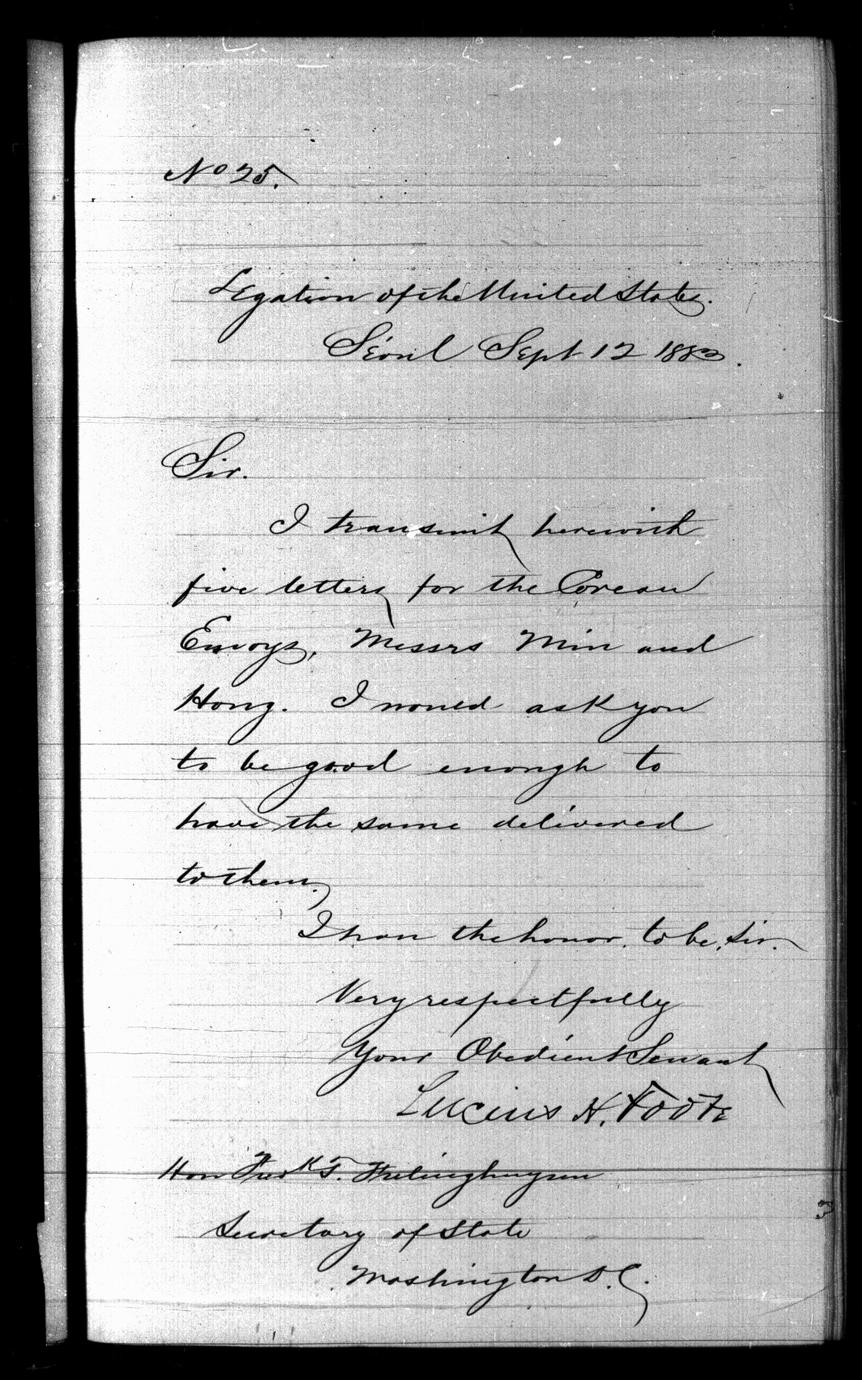 No 25.
Legation of the United States.
Séoul Sept 12 1883.
Sir.
I transmit herewith
five letters for the Corean
Envoys, Messrs Min and
Hong. I would ask you
to be good enough to
have the same delivered
to them.
I have the honor to be, Sir.
Very respectfully
Your Obedient Servant
Lucius H. Foote
Hon Fredk T. Frelinghuysen
Secretary of State
Washington D.C.